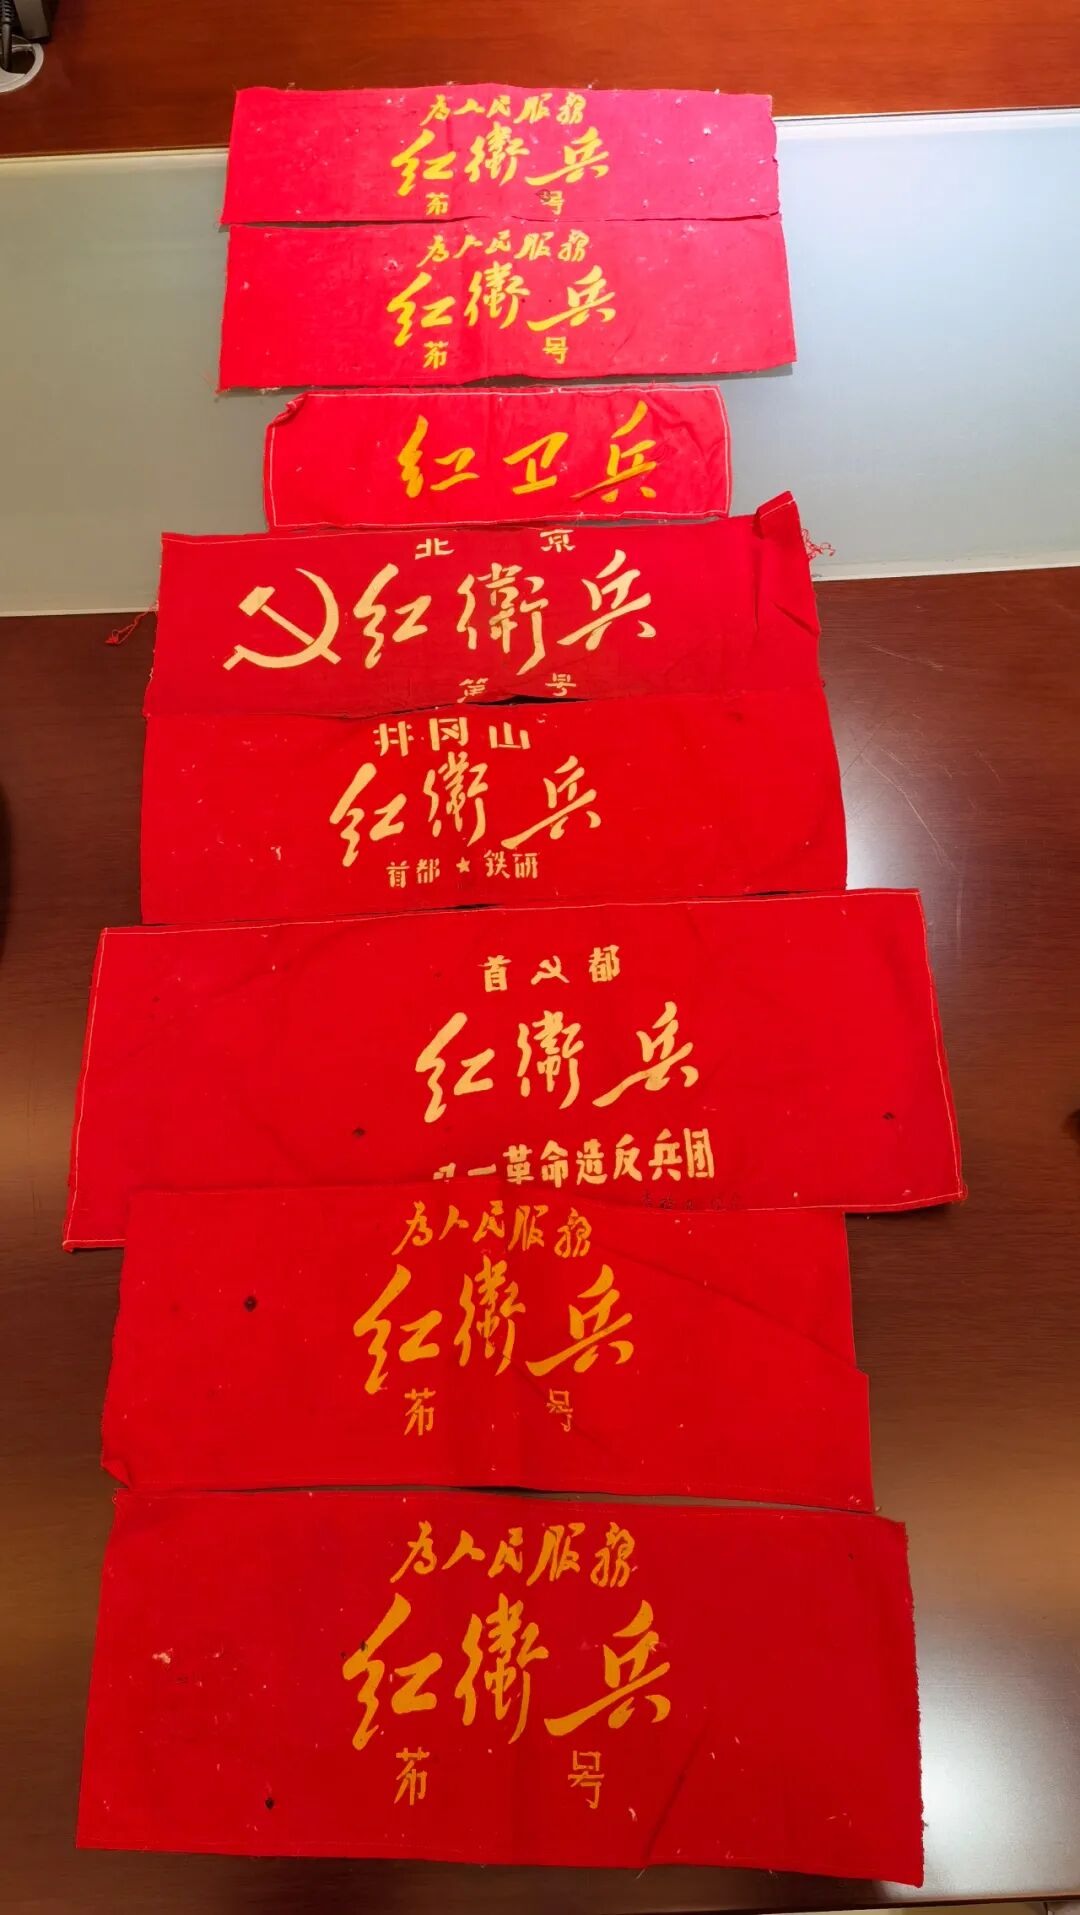 为人民服务
红衛兵
第 号
为人民服务
红衛兵
第 号
红卫兵
北 京
红衛兵
第 号
井冈山
红衛兵
首都★铁研
首 都
红衛兵
一革命造反兵团
为人民服务
红衛兵
第 号
为人民服务
红衛兵
第 号